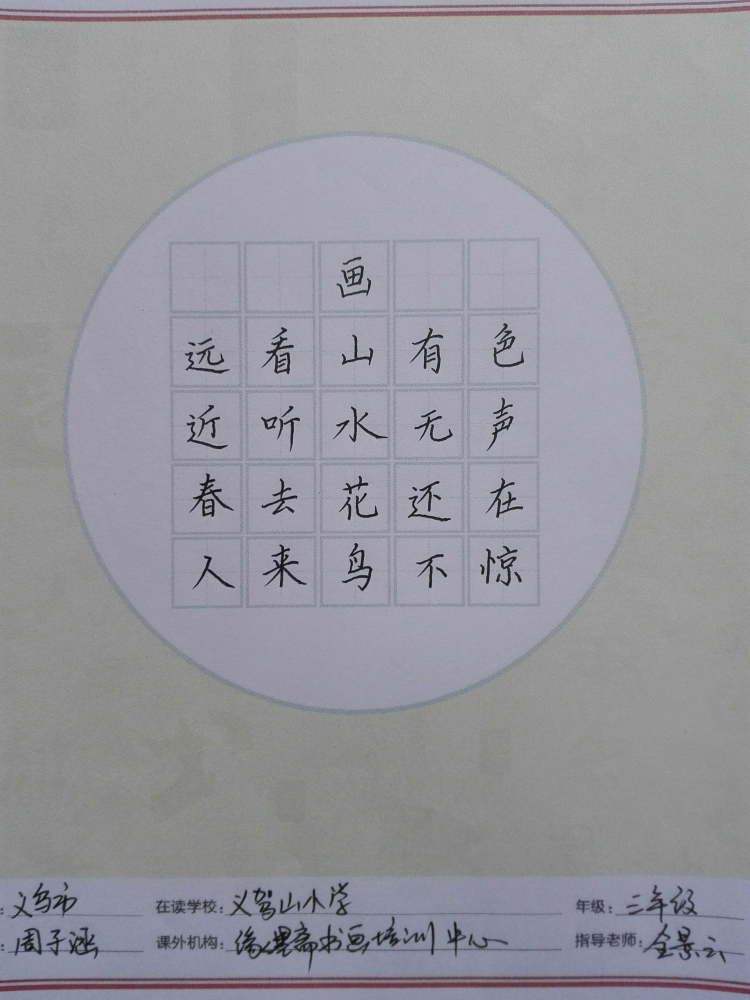 画
远看山有色
近听水无声
春去花还在
人来鸟不惊
: 义乌市 在读学校: 义驾山小学 年级: 三年级
: 周子涵 课外机构: 缘墨斋书画培训中心 指导老师: 全景云